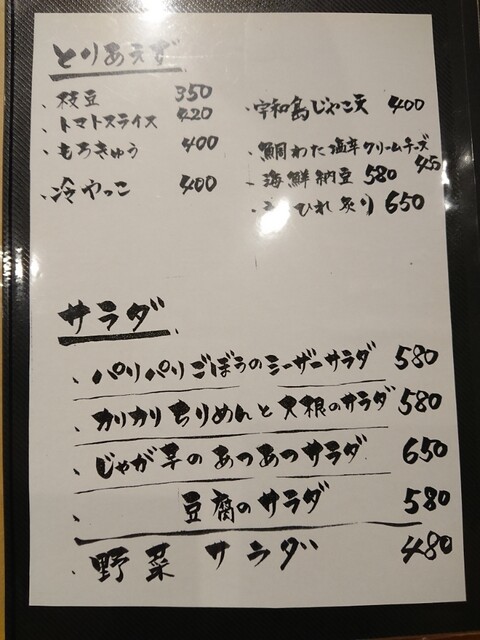 とりあえず
枝豆 350
トマトスライス 420
もろきゅう 400
冷やっこ 400
宇和島じゃこ天 400
鯛わた塩辛クリームチーズ 45
海鮮納豆 580
ひれ炙り 650
サラダ
パリパリごぼうのシーザーサラダ 580
カリカリちりめんと大根のサラダ 580
じゃが芋のあつあつサラダ 650
豆腐のサラダ 580
野菜サラダ 480